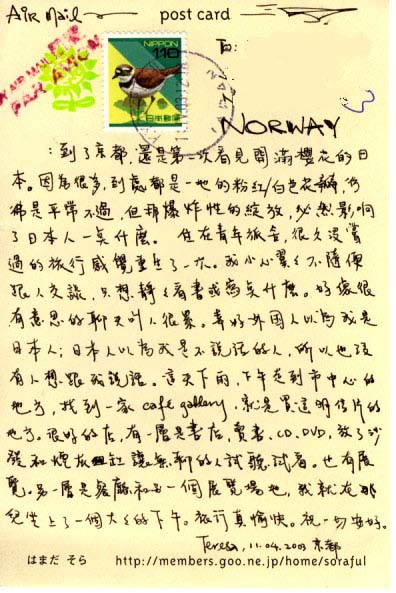 AIR MAIL
post card
AIR MAIL
PAR AVION
NIPPON
110
日本郵便
To:
NORWAY
：到了京都，還是第一次看見開滿櫻花的日
本。因為很多，到處都是一地的粉紅/白色花瓣，彷
彿是平常不過，但那爆炸性的綻放，必然影响
了日本人一些什麼。住在青年旅舍，很久沒嘗
過的旅行感覺重生了一次。我小心翼翼不隨便
跟人交談，只想靜靜看書或寫點什麼。好像很
有意思的聊天叫人很累。幸好外國人以為我是
日本人；日本人以為我是不說話的人，所以也沒
有人想跟我說話。這天下雨，下午走到市中心的
地方，找到一家 cafe gallery，就是買這明信片的
地方。很好的店，有一層是書店，賣書、CD、DVD，放了沙
發和煙灰缸讓無聊的人試聽試看。也有展
覽。另一層是餐廳和另一個展覽場地，我就在那
兒坐上了一個大大的下午。旅行真愉快。祝一切安好。
Teresa, 11.04.2003 京都
はまだ そら
http://members.goo.ne.jp/home/soraful